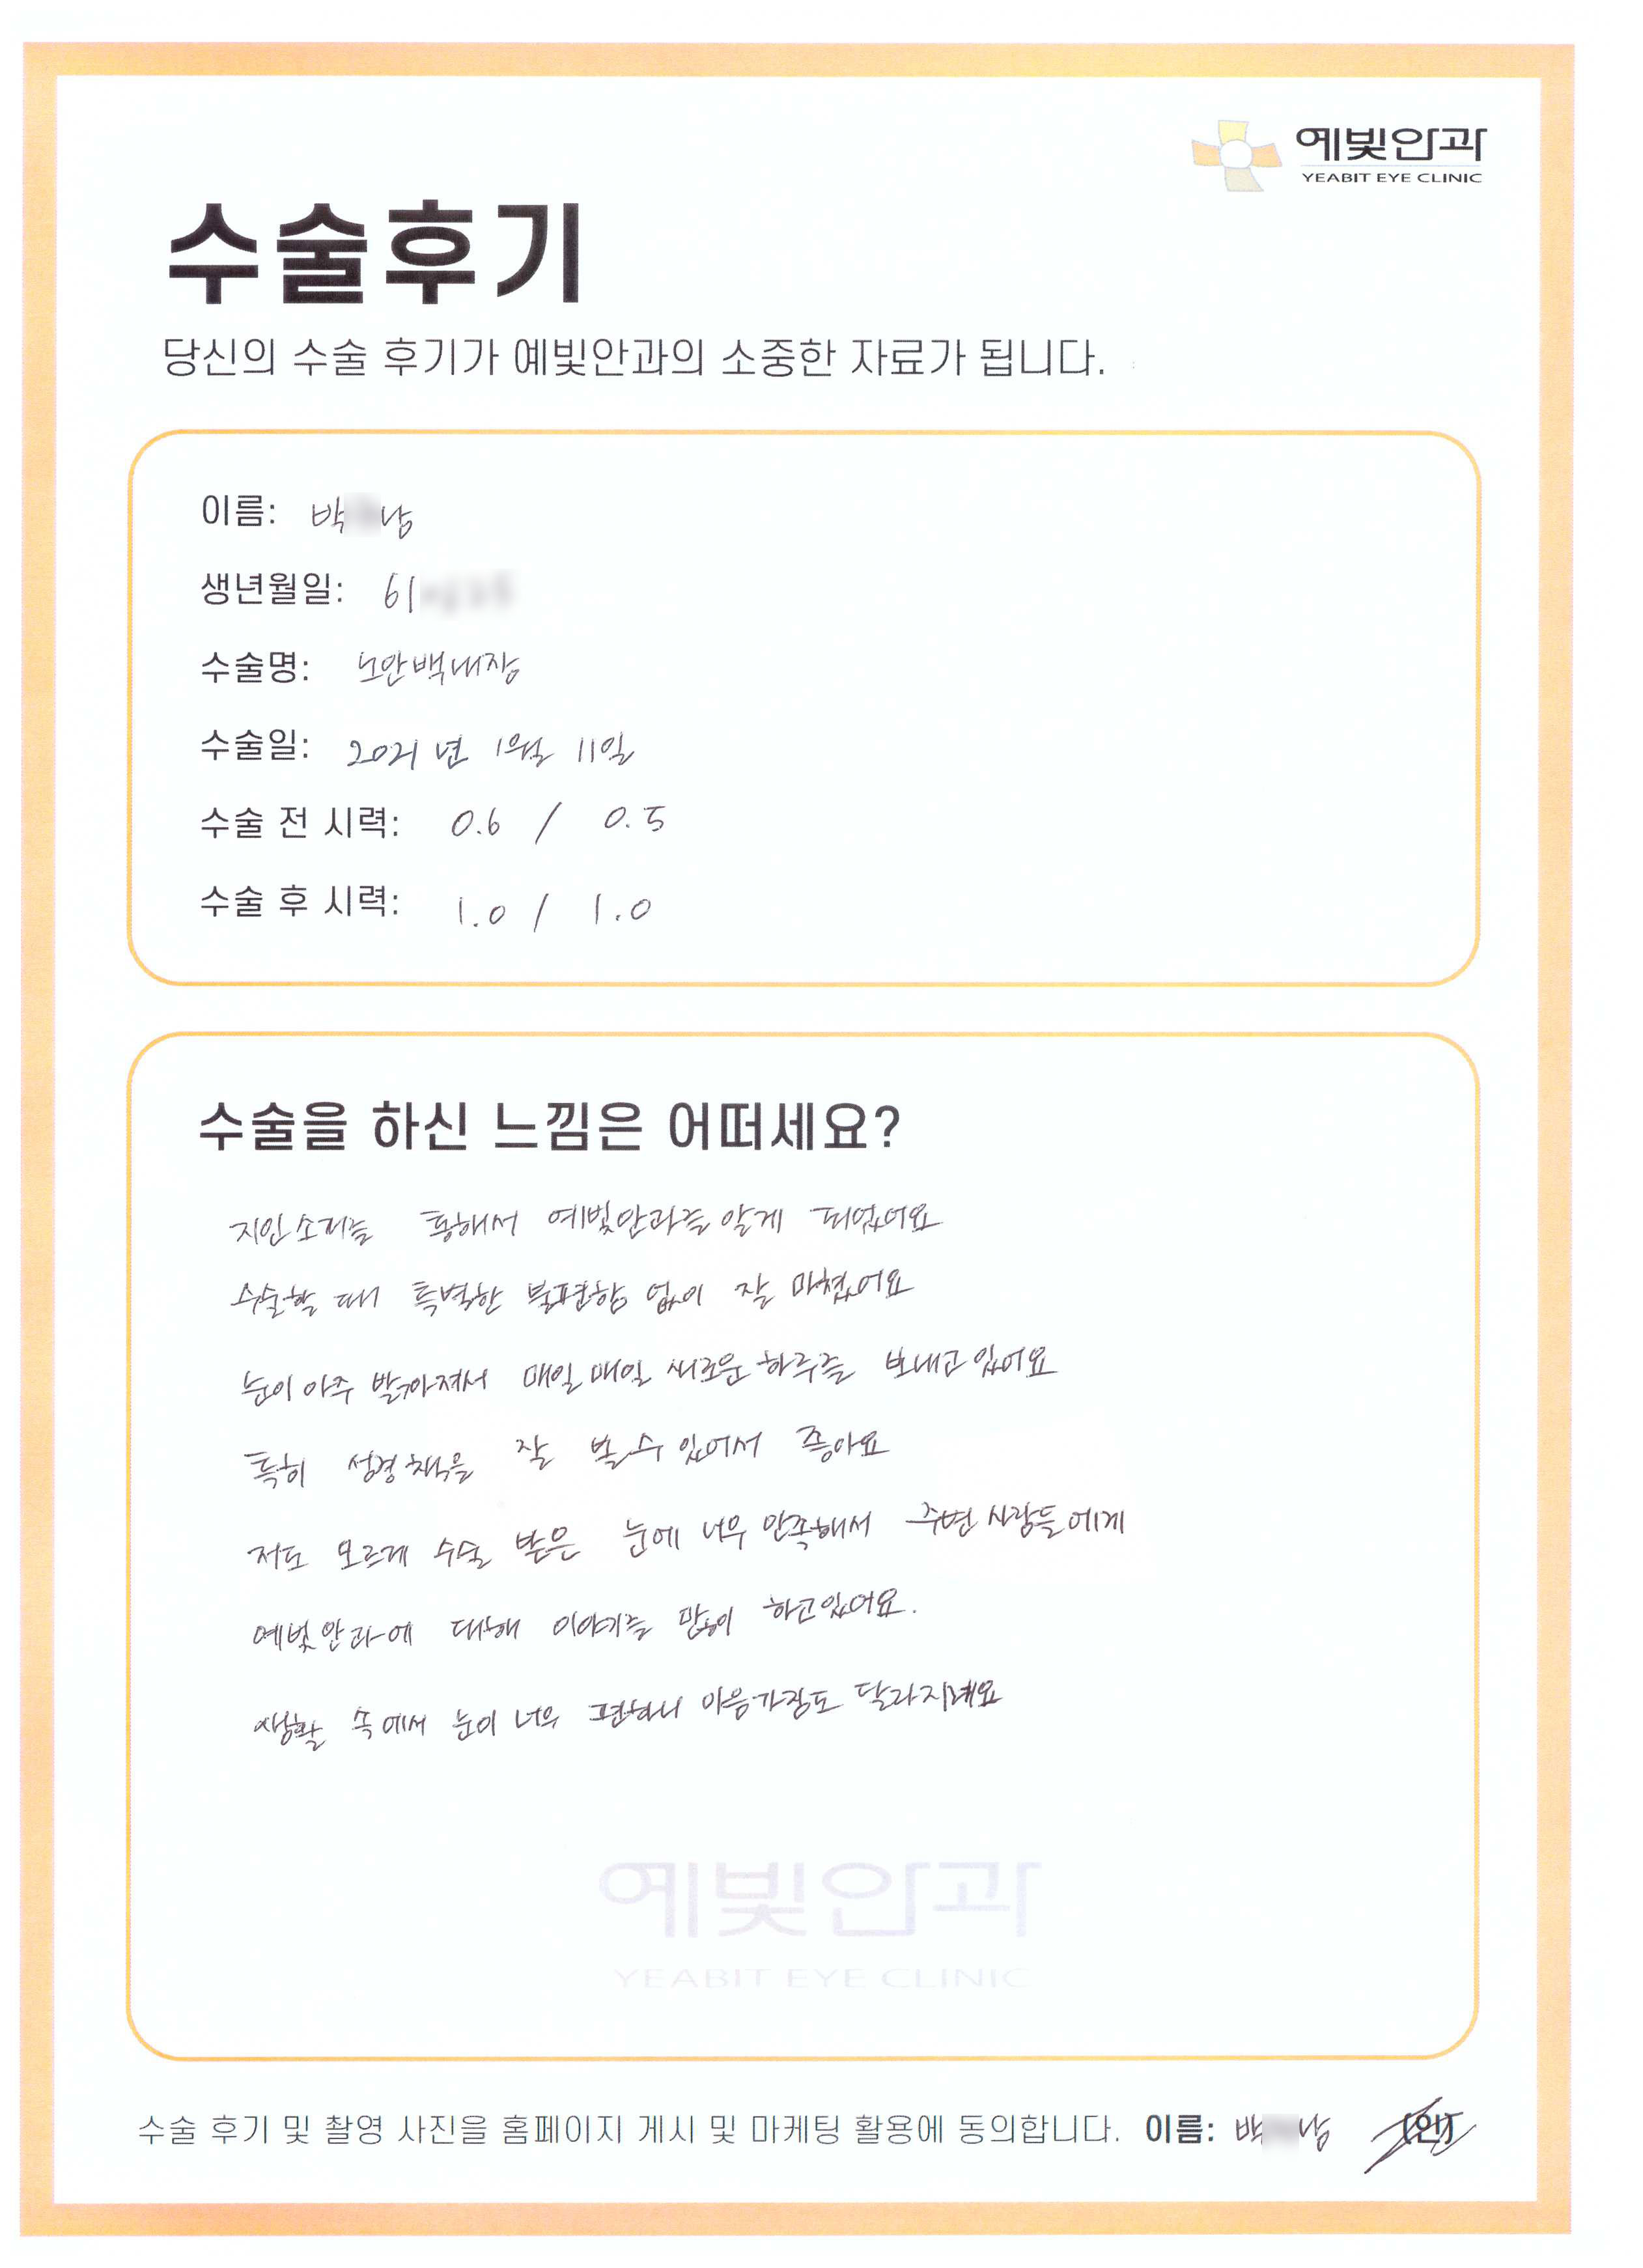 예빛안과
YEABIT EYE CLINIC
수술후기
당신의 수술 후기가 예빛안과의 소중한 자료가 됩니다.
이름: 박 남
생년월일: 61
수술명: 노안백내장
수술일: 2021년 1월 11일
수술 전 시력: 0.6 / 0.5
수술 후 시력: 1.0 / 1.0
수술을 하신 느낌은 어떠세요?
지인소리를 통해서 예빛안과를 알게 되었어요
수술할 때 특별한 불편함 없이 잘 마쳤어요
눈이 아주 밝아져서 매일매일 새로운 하루를 보내고 있어요
특히 성경책을 잘 볼 수 있어서 좋아요
저도 모르게 수술 받은 눈에 너무 만족해서 주변 사람들에게
예빛안과에 대해 이야기를 많이 하고있어요.
생활 속에서 눈이 너무 편하니 마음가짐도 달라지네요
예빛안과
YEABIT EYE CLINIC
수술 후기 및 촬영 사진을 홈페이지 게시 및 마케팅 활용에 동의합니다. 이름: 박 남 (인)